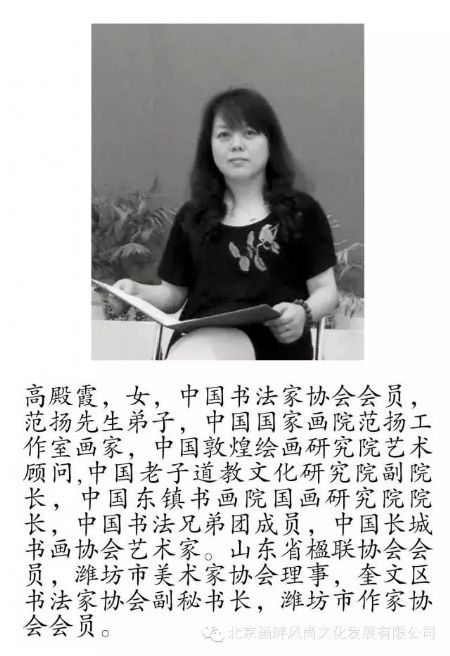 高殿霞，女，中国书法家协会会员，
范扬先生弟子，中国国家画院范扬工
作室画家，中国敦煌绘画研究院艺术
顾问,中国老子道教文化研究院副院
长，中国东镇书画院国画研究院院
长，中国书法兄弟团成员，中国长城
书画协会艺术家。山东省楹联协会会
员，潍坊市美术家协会理事，奎文区
书法家协会副秘书长，潍坊市作家协
会会员。
北京画畔风尚文化发展有限公司